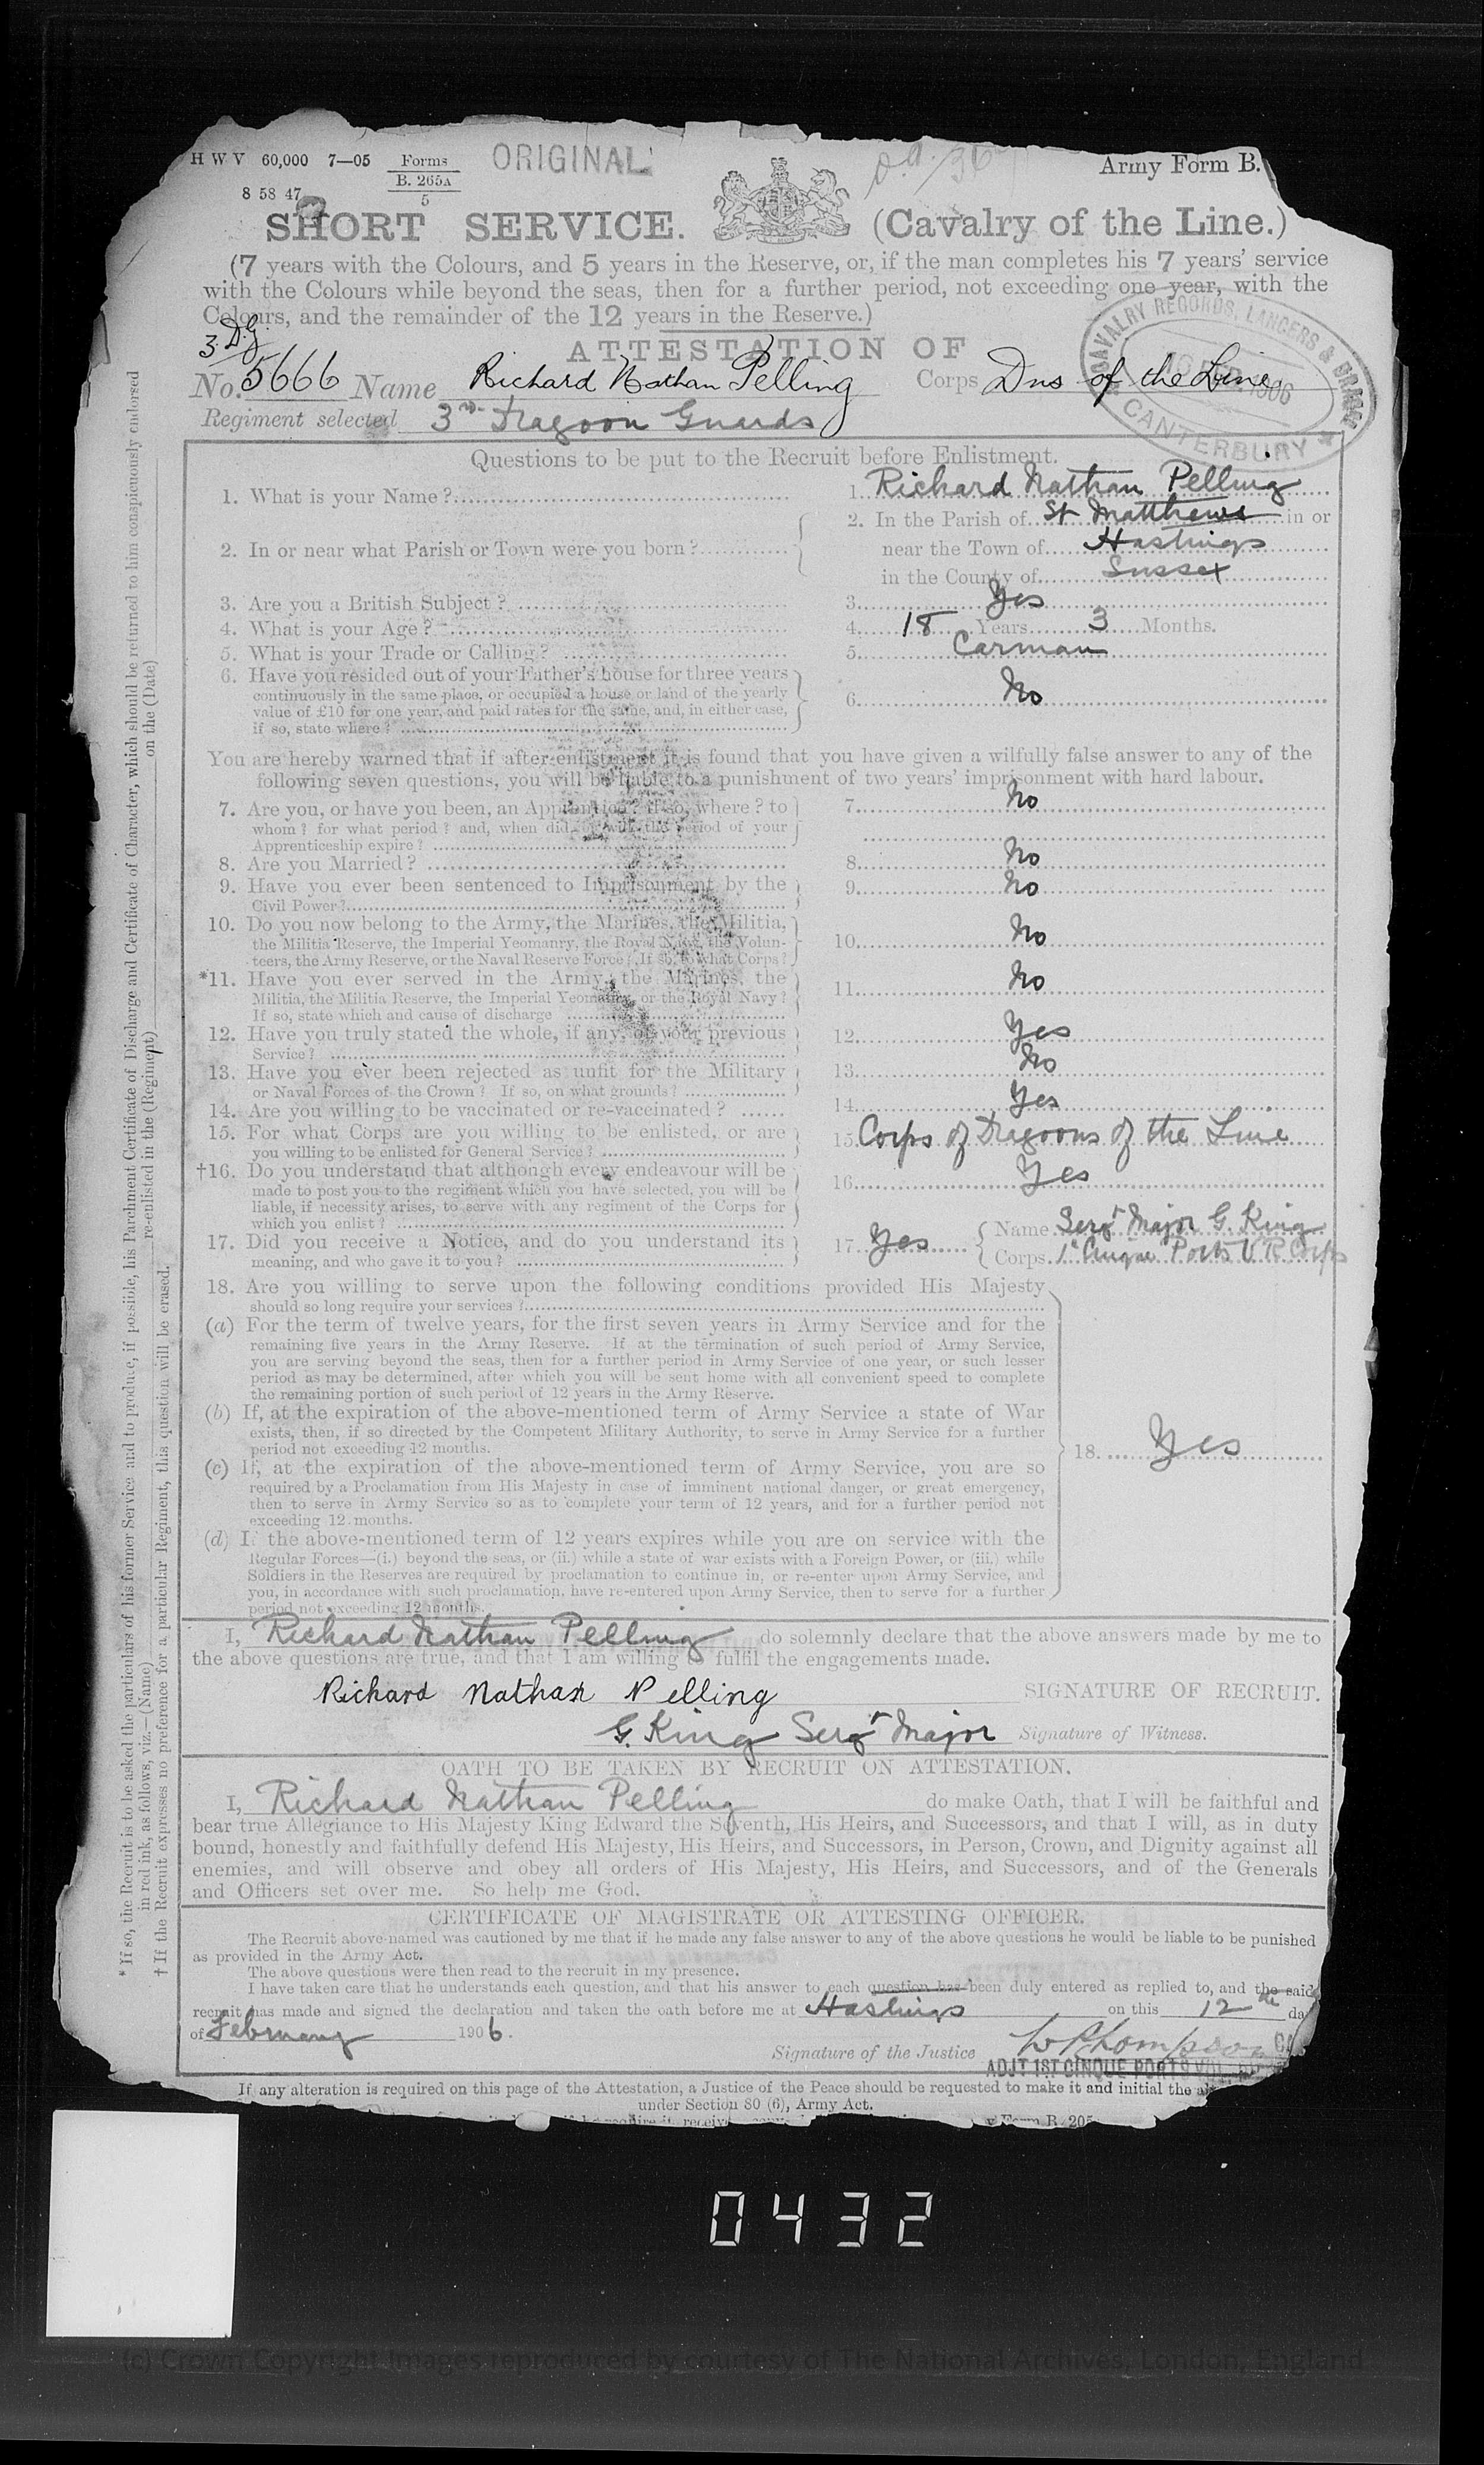 H W V 60,000 7—05 Forms B. 265A 5
8 58 47
ORIGINAL
Army Form B.
SHORT SERVICE. (Cavalry of the Line.)
(7 years with the Colours, and 5 years in the Reserve, or, if the man completes his 7 years' service
with the Colours while beyond the seas, then for a further period, not exceeding one year, with the
Colours, and the remainder of the 12 years in the Reserve.)
CAVALRY RECORDS, LANCERS & DRAGS
1906
CANTERBURY
3. D.G.
ATTESTATION OF
No. 5666 Name Richard Nathan Pelling Corps Dns of the Line
Regiment selected 3rd Dragoon Guards
Questions to be put to the Recruit before Enlistment.
1. What is your Name? 1. Richard Nathan Pelling
2. In or near what Parish or Town were you born? 2. In the Parish of St Matthews in or
near the Town of Hastings
in the County of Sussex
3. Are you a British Subject? 3. Yes
4. What is your Age? 4. 18 Years 3 Months.
5. What is your Trade or Calling? 5. Carman
6. Have you resided out of your Father's house for three years
continuously in the same place, or occupied a house or land of the yearly
value of £10 for one year, and paid rates for the same, and, in either case,
if so, state where? 6. No
You are hereby warned that if after enlistment it is found that you have given a wilfully false answer to any of the
following seven questions, you will be liable to a punishment of two years' imprisonment with hard labour.
7. Are you, or have you been, an Apprentice? if so, where? to 7. No
whom? for what period? and, when did, or will, the period of your
Apprenticeship expire?
8. Are you Married? 8. No
9. Have you ever been sentenced to Imprisonment by the 9. No
Civil Power?
10. Do you now belong to the Army, the Marines, the Militia,
the Militia Reserve, the Imperial Yeomanry, the Royal Navy, the Volun-
teers, the Army Reserve, or the Naval Reserve Force? If so, to what Corps? 10. No
*11. Have you ever served in the Army, the Marines, the
Militia, the Militia Reserve, the Imperial Yeomanry, or the Royal Navy?
If so, state which and cause of discharge 11. No
12. Have you truly stated the whole, if any, of your previous
Service? 12. Yes
13. Have you ever been rejected as unfit for the Military
or Naval Forces of the Crown? If so, on what grounds? 13. No
14. Are you willing to be vaccinated or re-vaccinated? 14. Yes
15. For what Corps are you willing to be enlisted, or are
you willing to be enlisted for General Service? 15. Corps of Dragoons of the Line
†16. Do you understand that although every endeavour will be
made to post you to the regiment which you have selected, you will be
liable, if necessity arises, to serve with any regiment of the Corps for
which you enlist? 16. Yes
17. Did you receive a Notice, and do you understand its
meaning, and who gave it to you? 17. Yes Name Sergt Major G. King
Corps 1st Cinque Ports V R Corps
18. Are you willing to serve upon the following conditions provided His Majesty
should so long require your services?
(a) For the term of twelve years, for the first seven years in Army Service and for the
remaining five years in the Army Reserve. If at the termination of such period of Army Service,
you are serving beyond the seas, then for a further period in Army Service of one year, or such lesser
period as may be determined, after which you will be sent home with all convenient speed to complete
the remaining portion of such period of 12 years in the Army Reserve.
(b) If, at the expiration of the above-mentioned term of Army Service a state of War
exists, then, if so directed by the Competent Military Authority, to serve in Army Service for a further
period not exceeding 12 months.
(c) If, at the expiration of the above-mentioned term of Army Service, you are so
required by a Proclamation from His Majesty in case of imminent national danger, or great emergency,
then to serve in Army Service so as to complete your term of 12 years, and for a further period not
exceeding 12 months.
(d) If the above-mentioned term of 12 years expires while you are on service with the
Regular Forces—(i.) beyond the seas, or (ii.) while a state of war exists with a Foreign Power, or (iii.) while
Soldiers in the Reserves are required by proclamation to continue in, or re-enter upon Army Service, and
you, in accordance with such proclamation, have re-entered upon Army Service, then to serve for a further
period not exceeding 12 months.
18. Yes
I, Richard Nathan Pelling do solemnly declare that the above answers made by me to
the above questions are true, and that I am willing to fulfil the engagements made.
Richard Nathan Pelling SIGNATURE OF RECRUIT.
G. King Sergt Major Signature of Witness.
OATH TO BE TAKEN BY RECRUIT ON ATTESTATION.
I, Richard Nathan Pelling do make Oath, that I will be faithful and
bear true Allegiance to His Majesty King Edward the Seventh, His Heirs, and Successors, and that I will, as in duty
bound, honestly and faithfully defend His Majesty, His Heirs, and Successors, in Person, Crown, and Dignity against all
enemies, and will observe and obey all orders of His Majesty, His Heirs, and Successors, and of the Generals
and Officers set over me. So help me God.
CERTIFICATE OF MAGISTRATE OR ATTESTING OFFICER.
The Recruit above-named was cautioned by me that if he made any false answer to any of the above questions he would be liable to be punished
as provided in the Army Act.
The above questions were then read to the recruit in my presence.
I have taken care that he understands each question, and that his answer to each question has been duly entered as replied to, and the said
recruit has made and signed the declaration and taken the oath before me at Hastings on this 12th da
of February 1906.
Signature of the Justice W Thompson
ADJT 1ST CINQUE PORTS
If any alteration is required on this page of the Attestation, a Justice of the Peace should be requested to make it and initial the
under Section 80 (6), Army Act.
* If so, the Recruit is to be asked the particulars of his former Service and to produce, if possible, his Parchment Certificate of Discharge and Certificate of Character, which should be returned to him conspicuously endorsed
in red ink, as follows, viz.—(Name) re-enlisted in the (Regiment) on the (Date)
† If the Recruit expresses no preference for a particular Regiment, this question will be erased.
0432
(c) Crown Copyright Images reproduced by courtesy of The National Archives, London, England